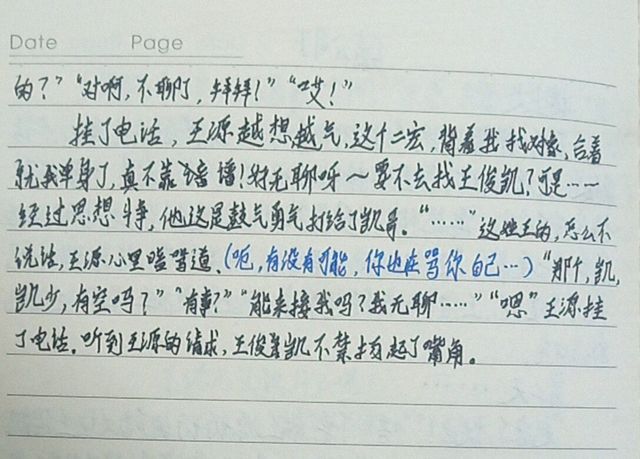 Date Page
的？”“对啊，不聊了，拜拜！”“哎！”
挂了电话，王源越想越气，这个二宏，背着我找对象，合着
就我单身了，真不靠谱！好无聊呀～要不去找王俊凯？可是……
经过思想斗争，他还是鼓气勇气打给了凯哥。“……”这姓王的，怎么不
说话，王源心里嘀咕道、(呃，有没有可能，你也在骂你自己…)“那个，凯，
凯少，有空吗？”“有事？”“能来接我吗？我无聊……”“嗯”王源挂
了电话。听到王源的请求，王俊凯不禁扬起了嘴角。